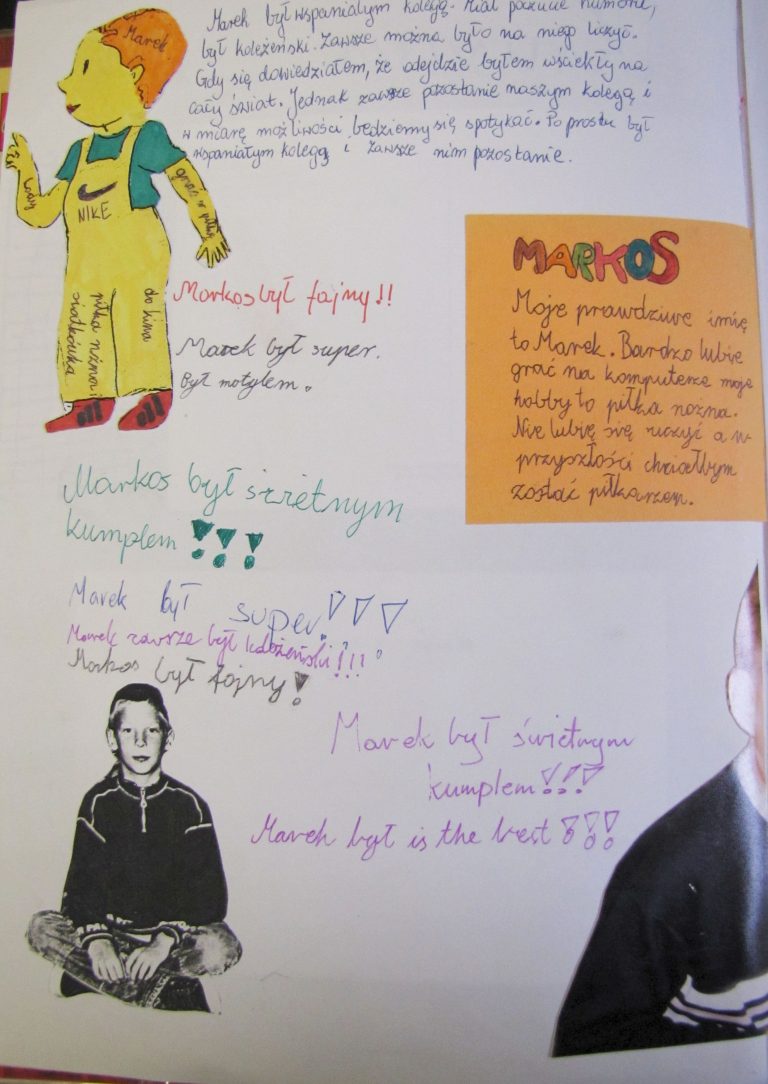 Marek był wspaniałym kolegą. Miał poczucie humoru,
był koleżeński. Zawsze można było na niego liczyć.
Gdy się dowiedziałem, że odejdzie byłem wściekły na
cały świat. Jednak zawsze pozostanie naszym kolegą i
w miarę możliwości będziemy się spotykać. Po prostu był
wspaniałym kolegą i zawsze nim pozostanie.
Marek
grać w piłkę
NIKE
do kina
piłka nożna i
siatkówka
MARKOS
Moje prawdziwe imię
to Marek. Bardzo lubię
grać na komputerze moje
hobby to piłka nożna.
Nie lubię się uczyć a w
przyszłości chciałbym
zostać piłkarzem.
Markos był fajny!!
Marek był super.
Był motylem.
Markos był świetnym
kumplem !!!
Marek był super!!!
Marek zawsze był koleżeński!!!
Markos był fajny!
Marek był świetnym
kumplem!!!
Marek był is the best !!!